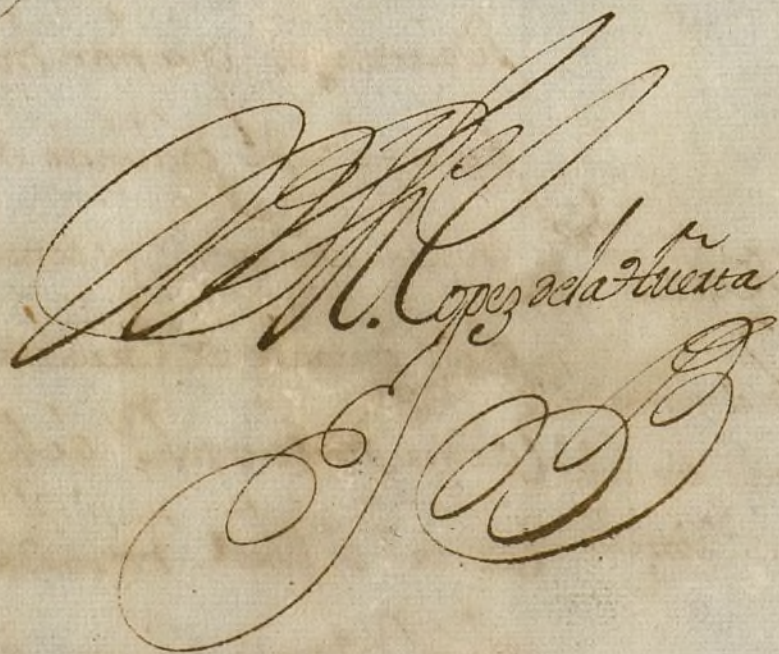 M. Lopez de la Huerta